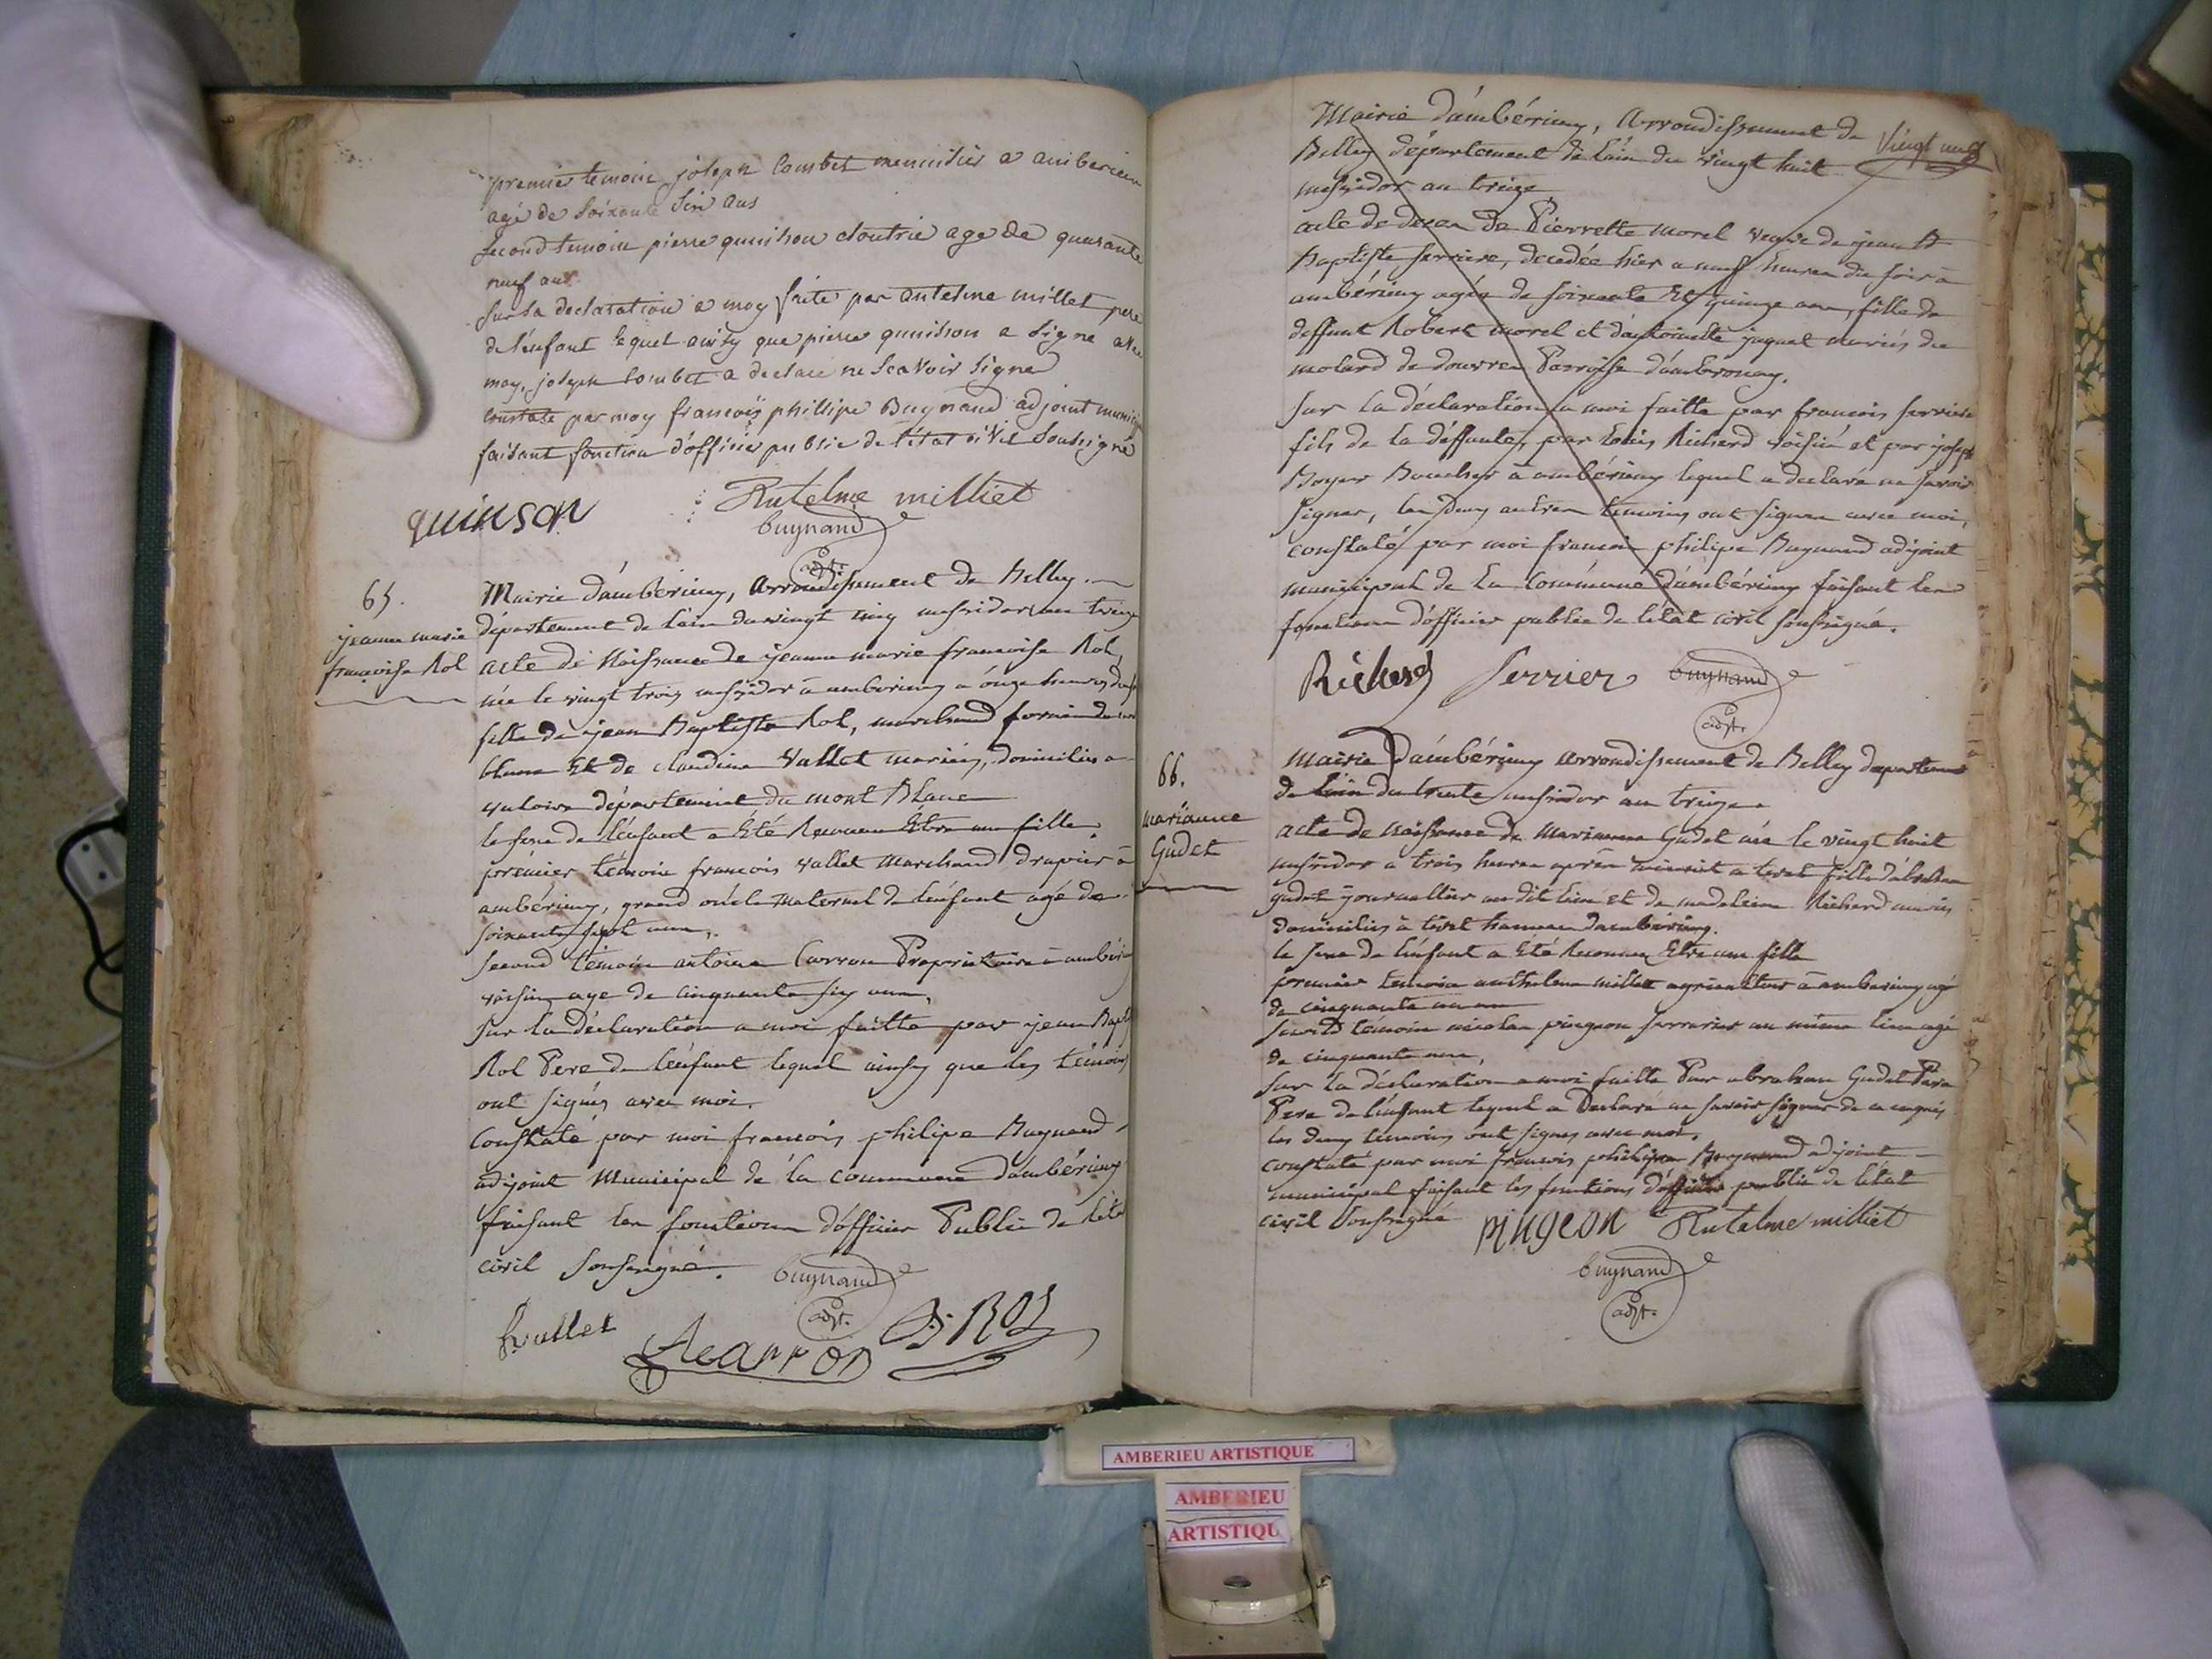 premier temoin joseph Combet menuisier a amberieu
agé de soixante six ans
second temoin pierre quinson cloutrie age de quarante
neuf ans
sur la declaration a moy faite par antelme millet pere
de l'enfant lequel ainsy que pierre quinson a signe avec
moy, joseph Combet a declare ne scavoir signe
constate par moy francois phillipe Bugnand adjoint munic
faisant fonction d'officier public de l'état civil soussigné
quinson Antelme milliet
bugnand
adjt.
65.
jeanne marie
francoise Rol
Mairie d'ambérieux, arrondissement de Belley
département de l'ain du vingt cinq messidor an treize
acte de Naissance de jeanne marie francoise Rol,
née le vingt trois messidor à amberieux a onze heures du
fille de jean Baptiste Rol, marchand forain
et de claudine Vallet mariés, domiciliés a
département du mont Blanc
le sexe de l'enfant a été Reconnu Etre une fille.
prémier témoin francois vallet Marchand drapier à
ambérieux, grand oncle maternel de l'enfant agé de
soixante sept ans,
second témoin antoine Carron Propriétaire à ambéri
voisin, age de cinquante six ans,
sur la déclaration a moi faitte par jean Bapt
Rol Pere de l'enfant lequel ainsy que les témoins
ont signés avec moi.
Constaté par moi francois philipe Bugnand,
adjoint Municipal de la commune d'ambérieux
faisant les fonctions d'officier Public de l'éta
civil soussigné. bugnand
adjt.
f vallet Acarron B. Rol
Vingt neuf
Mairie d'ambérieux, Arrondissement de
Belley département de l'ain du vingt huit
messidor an treize
acte de décés de Pierrette morel veuve de jean B
Baptiste serriere, decedée hier a neuf heures du soir à
ambérieux agée de soixante Et quinze ans, fille de
deffunt Robert morel et d'antoinette jaquet mariés du
molard de douvres Parroisse d'ambronay.
sur la déclaration a moi faitte par francois serriere
fils de la déffunte, par Louis Richard voisin et par joseph
Boyer Boucher à ambérieux lequel a declaré ne savoir
signer, les deux autres témoins ont signés avec moi,
constaté par moi francois philipe Bugnand adjoint
municipal de la Commune d'ambérieux faisant les
fonctions d'officier public de l'état civil soussigné.
Richard serrier bugnand
adjt.
66.
marianne
Gudet
Mairie D'ambérieux arrondissement de Belley departement
de l'ain du trente messidor an treize.
acte de naissance de Marianne Gudet née le vingt huit
messidor a trois heures après minuit a tiret fille d'abraham
gudet journallier au dit lieu et de madeleine Richard mariés
domiciliés à tiret hameau d'ambérieux.
le sexe de l'enfant a été Reconnu Etre une fille
premier temoin anthelme millet agriculteur à amberieux agé
de cinquante un ans
second temoin nicolas pingeon serrurier au même lieu agé
de cinquante ans,
sur la déclaration a moi faitte Par abraham Gudet Pere
Pere de l'enfant lequel a Declaré ne savoir signer de ce enquis
les deux temoins ont signés avec moi.
constaté par moi francois philipe Bugnand adjoint
municipal faisant les fonctions d'officier public de l'état
civil soussigné pingeon Antelme milliet
bugnand
adjt.
AMBERIEU ARTISTIQUE
AMBERIEU
ARTISTIQU